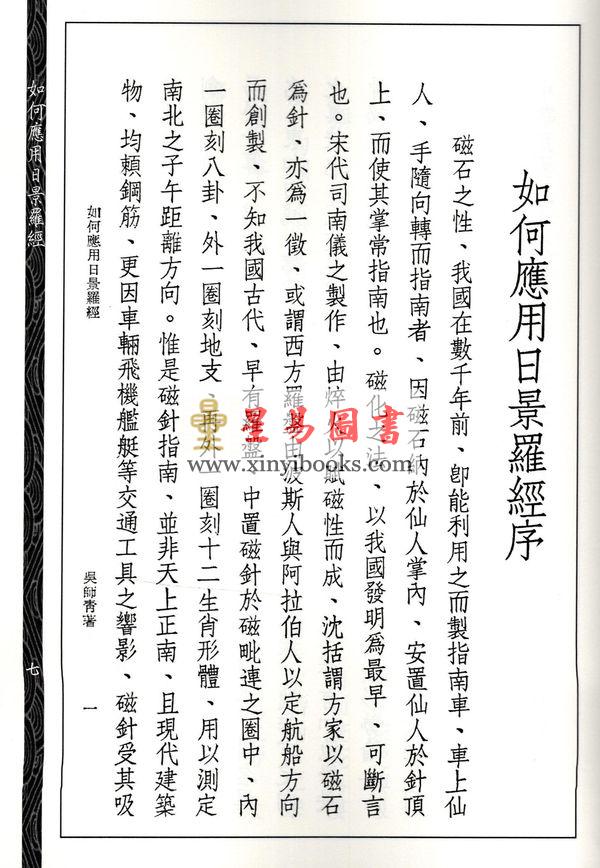 如何應用日景羅經序
磁石之性、我國在數千年前、卽能利用之而製指南車、車上仙
人、手隨向轉而指南者、因磁石納於仙人掌內、安置仙人於針頂
上、而使其掌常指南也。磁化之法、以我國發明爲最早、可斷言
也。宋代司南儀之製作、由焠火以賦磁性而成、沈括謂方家以磁石
爲針、亦爲一徵、或謂西方羅盤由波斯人與阿拉伯人以定航船方向
而創製、不知我國古代、早有羅盤、中置磁針於磁毗連之圈中、內
一圈刻八卦、外一圈刻地支、再外一圈刻十二生肖形體、用以測定
南北之子午距離方向。惟是磁針指南、並非天上正南、且現代建築
物、均賴鋼筋、更因車輛飛機艦艇等交通工具之響影、磁針受其吸
如何應用日景羅經
吳師靑著
一
如何應用日景羅經
七
星易圖書
www.xinyibooks.com